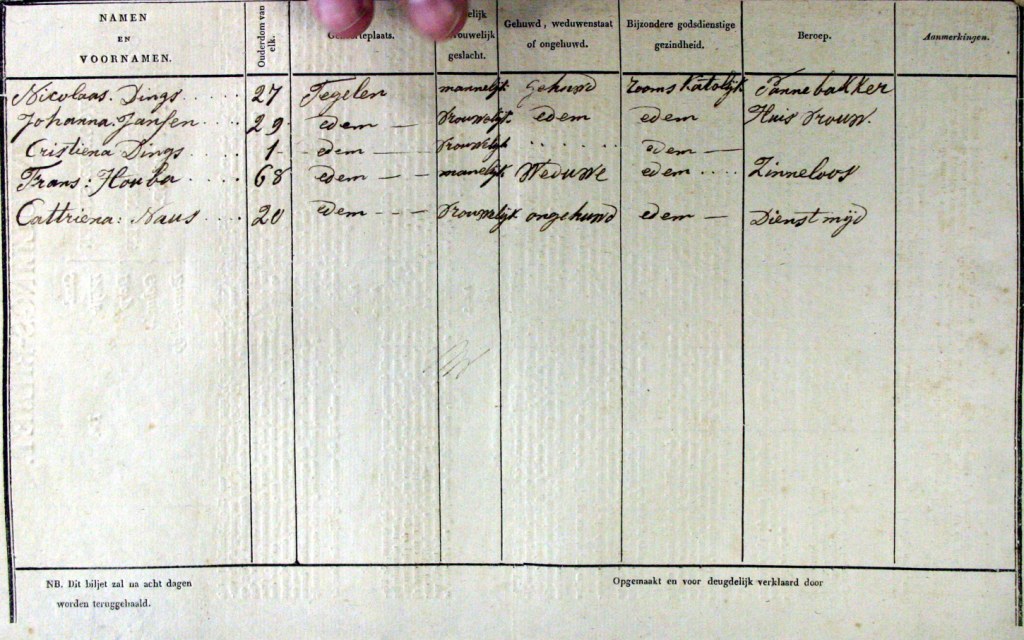 NAMEN EN VOORNAMEN. Ouderdom van elk. Gehuwd, weduwenstaat of ongehuwd. Bijzondere godsdienstige gezindheid. Beroep. Aanmerkingen.
Nicolaas. Dings ..... 27 Tegelen mannelijk gehuwd rooms katolijk Pannebakker
Johanna. Jansen .... 29 edem — vrouwelijk edem edem Huis vrouw.
Cristiena Dings ..... 1 - edem — vrouwelijk ...... edem —
Frans: Houba ..... 68 edem — manelijk Weduwe edem .... Zinneloos
Cattriena: Naus .... 20 edem - - - vrouwelijk ongehuwd edem — Dienst mijd
NB. Dit biljet zal na acht dagen
worden teruggehaald.
Opgemaakt en voor deugdelijk verklaard door